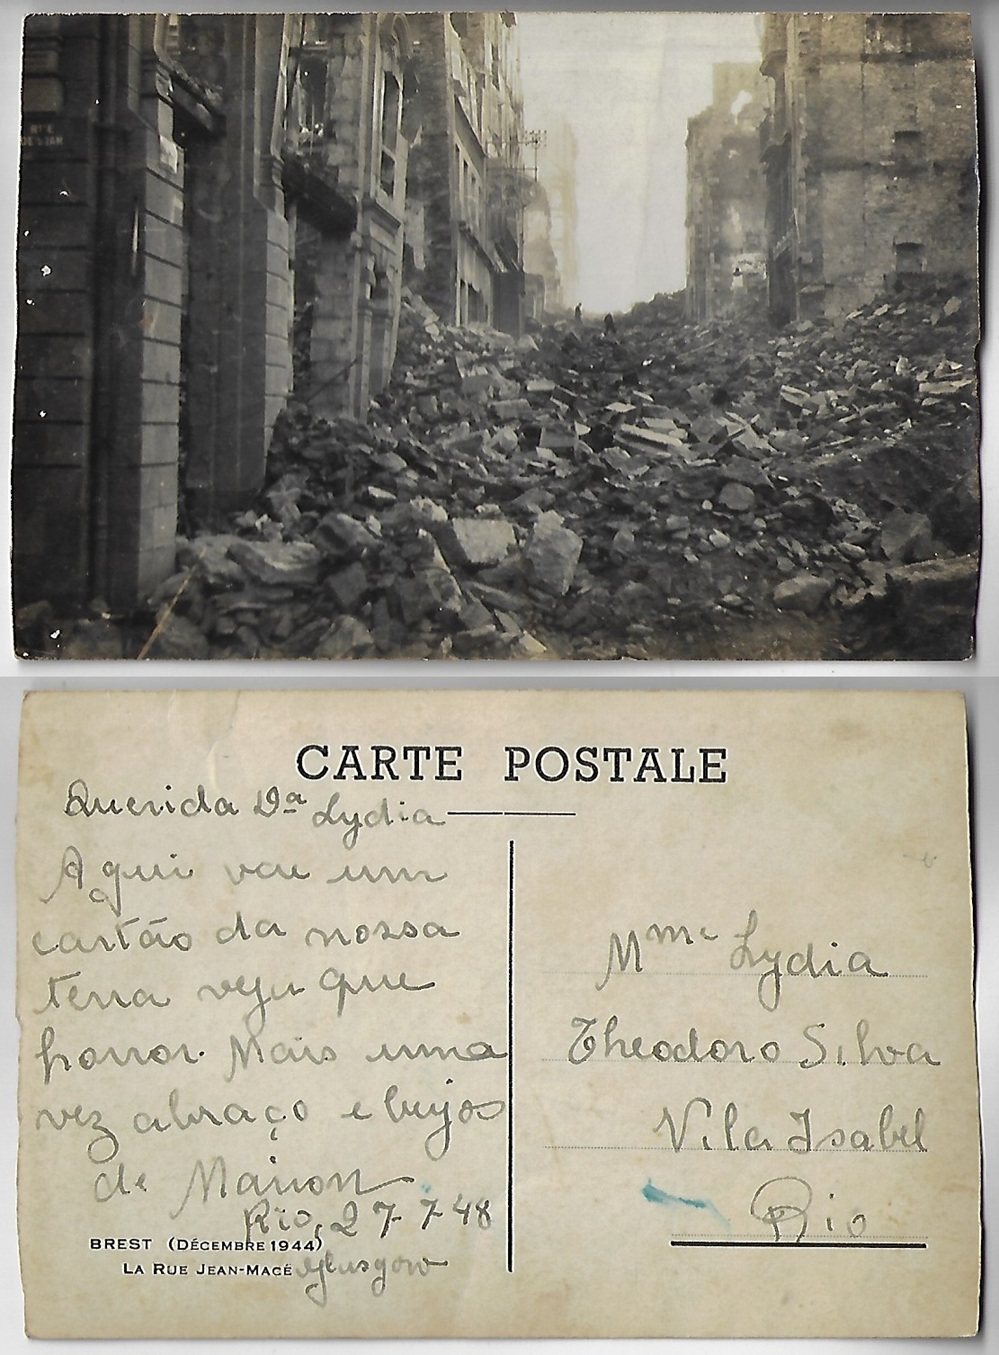 RUE
CARTE POSTALE
Querida Dª Lydia
Aqui vae um
cartão da nossa
terra veja que
horror. Mais uma
vez abraço e beijos
de Marion
Rio, 27-7-48
BREST (DÉCEMBRE 1944)
LA RUE JEAN-MACÉ Glasgow
Mme Lydia
Theodoro Silva
Vila Isabel
Rio